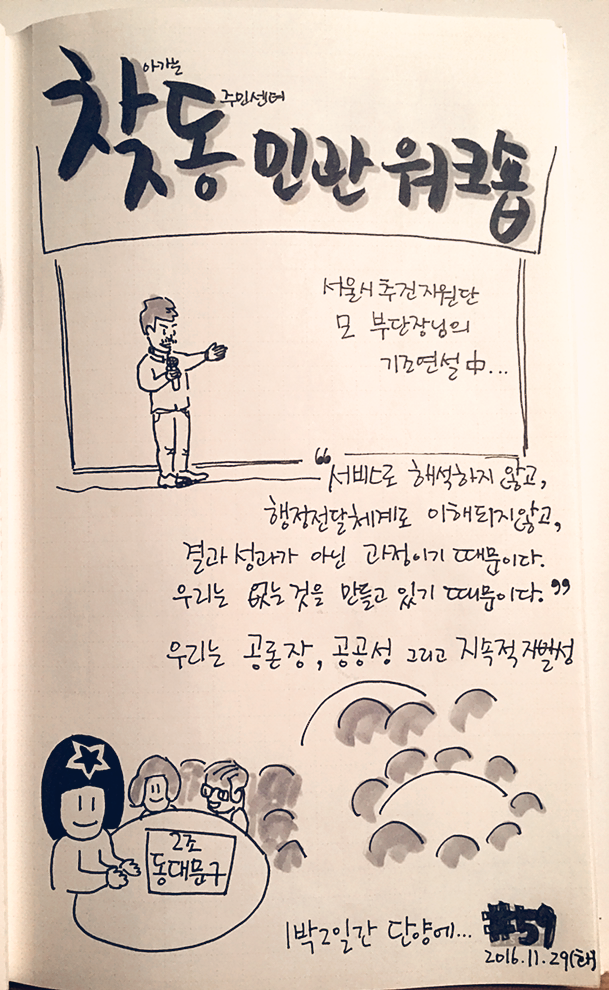 찾아가는
동주민센터
민관 워크숍
서울시 추진지원단
모 부단장님의
기조연설 中...
“서비스로 해석하지 않고,
행정전달체계로 이해되지않고,
결과 성과가 아닌 과정이기 때문이다.
우리는 없는것을 만들고 있기 때문이다.”
우리는 공론장, 공공성 그리고 지속적 자발성
2조
동대문구
1박2일간 단양에... #59
2016.11.29(화)